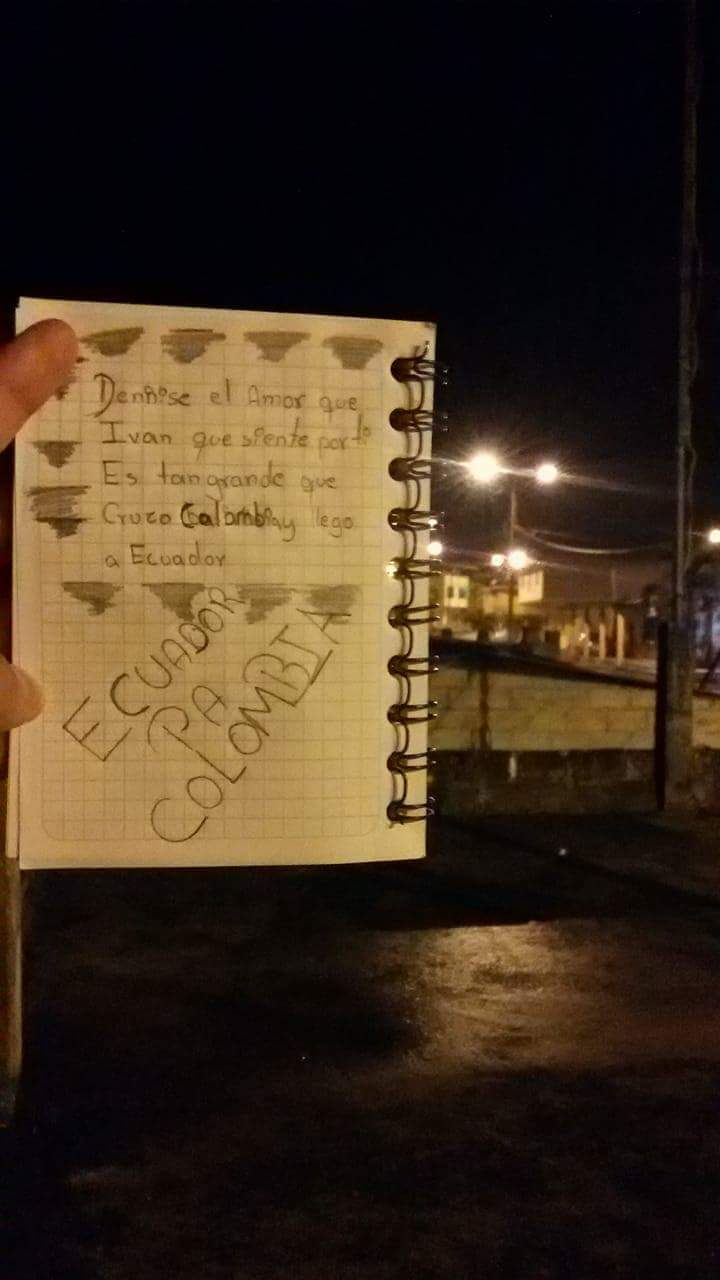 Dennise el Amor que
Ivan que siente por ti
Es tan grande que
Cruzo Colombia y lego
a Ecuador
ECUADOR
PA
COLOMBIA